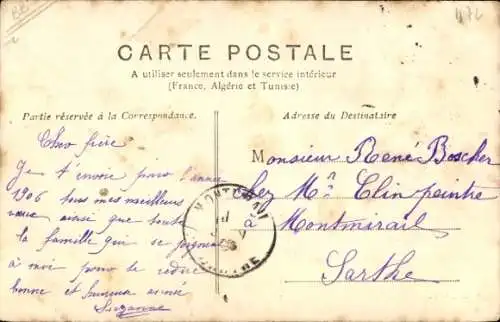 CARTE POSTALE
A utiliser seulement dans le service intérieur
(France, Algérie et Tunisie)
Partie réservée à la Correspondance.
Adresse du Destinataire
Cher frère
Je t'envoie pour l'année
1906 tous mes meilleurs
vœux ainsi que toute
la famille qui se joignent
à moi pour te redire
bonne et heureuse année
Suzanne
Monsieur René Boscher
chez Mr Clin peintre
à Montmirail
Sarthe
MONTMIRAIL
SARTHE